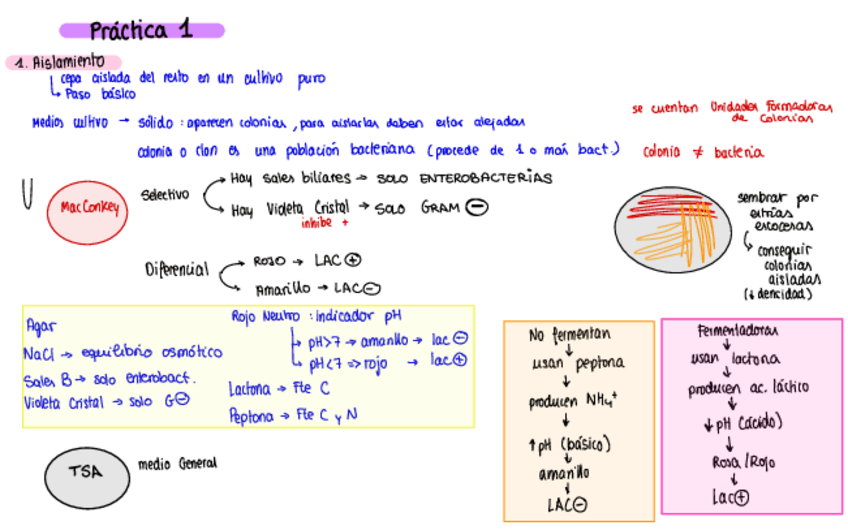 Práctica 1
1. Aislamiento
cepa aislada del resto en un cultivo puro
Paso básico
Medios cultivo → sólido : aparecen colonias, para aislarlas deben estar alejadas
colonia o clon es una población bacteriana (procede de 1 o más bact.)
se cuentan Unidades Formadoras
de Colonias
colonia ≠ bacteria
MacConkey
Selectivo
Hay sales biliares → SOLO ENTEROBACTERIAS
Hay Violeta Cristal → SOLO GRAM ⊖
inhibe +
Diferencial
ROJO → LAC ⊕
Amarillo → LAC ⊖
sembrar por
estrías
escocesas
conseguir
colonias
aisladas
(↓ densidad)
Agar
NaCl → equilibrio osmótico
Sales B → solo enterobact.
Violeta Cristal → solo G⊖
Rojo Neutro : Indicador pH
pH>7 → amarillo → lac ⊖
pH<7 => rojo → lac ⊕
Lactosa → Fte C
Peptona → Fte C y N
No fermentan
↓
usan peptona
↓
producen NH₄⁺
↓
↑ pH (básico)
↓
amarillo
↓
LAC⊖
Fermentadoras
↓
usan lactosa
↓
producen ac. láctico
↓
↓ pH (ácido)
↓
Rosa/Rojo
↓
Lac⊕
TSA
medio General